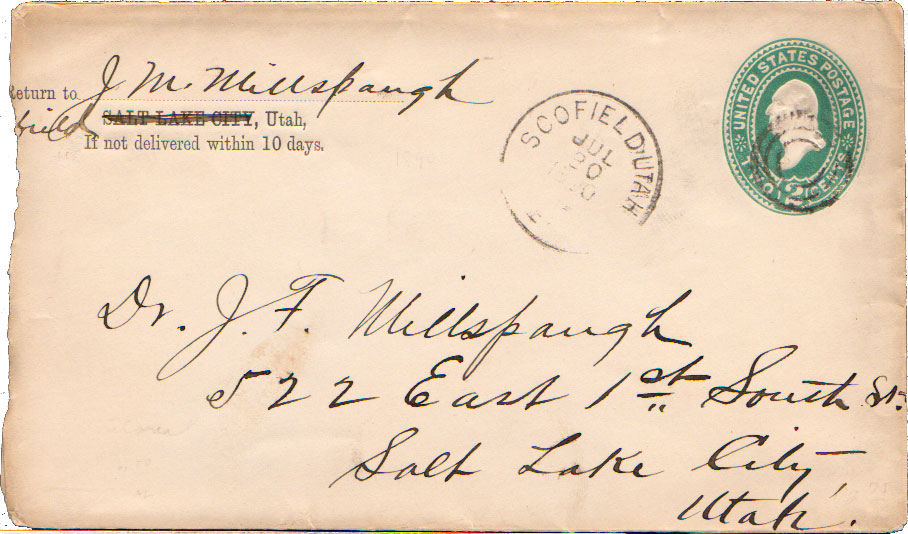 Return to J. M. Millspaugh
field SALT LAKE CITY, Utah,
If not delivered within 10 days.
SCOFIELD, UTAH
JUL
20
UNITED STATES POSTAGE
TWO CENTS
2
Dr. J. F. Millspaugh
522 East 1st South St.
Salt Lake City,
Utah.